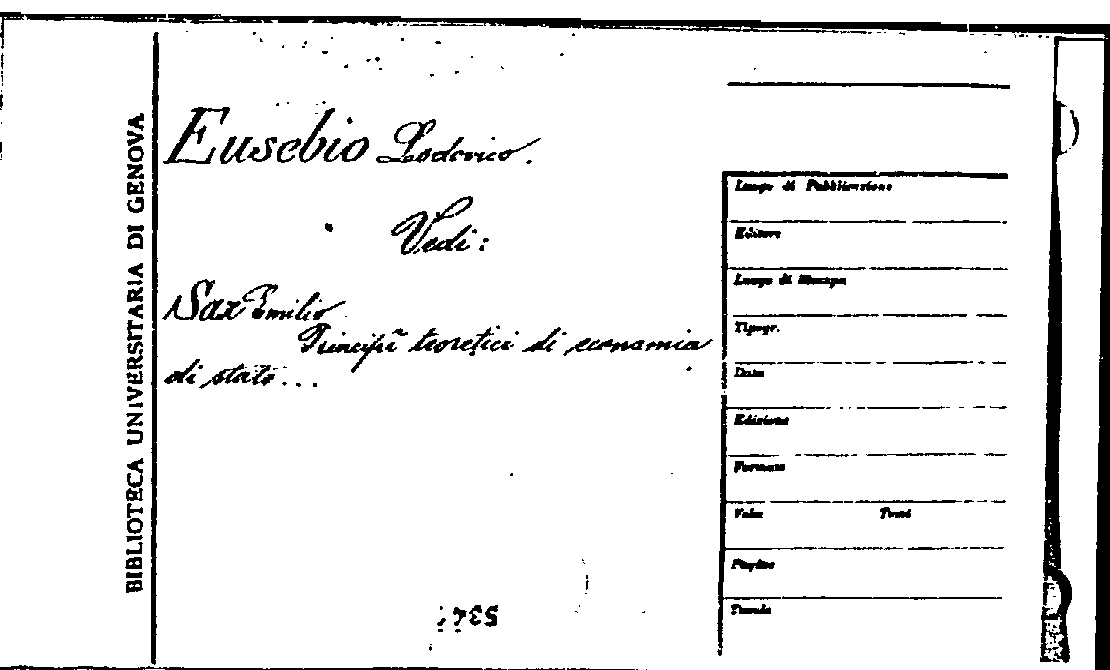 BIBLIOTECA UNIVERSITARIA DI GENOVA
Eusebio Lodovico.
Vedi:
Sax Emilio
Principii teoretici di economia
di stato...
Luogo di Pubblicazione
Editore
Luogo di Stampa
Tipogr.
Data
Edizione
Formato
Volu Tomi
Pagine
Tavole